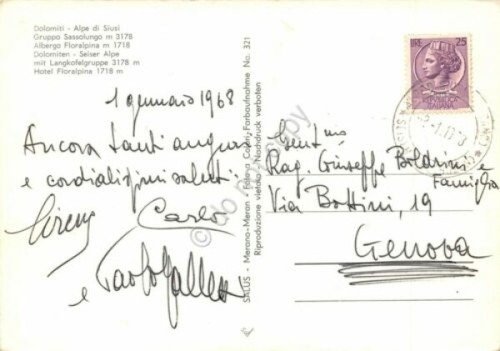 Dolomiti - Alpe di Siusi
Gruppo Sassolungo m 3178
Albergo Floralpina m 1718
Dolomiten - Seiser Alpe
mit Langkofelgruppe 3178 m
Hotel Floralpina 1718 m
1 gennaio 1968
Ancora tanti auguri
e cordialissimi saluti
Carlo
e Paolo
SALUS - Merano-Meran - Fotocolor Farbaufnahme No. 321
Riproduzione vietata - Nachdruck verboten
LIRE 25
ITALIANA
Rag. Giuseppe Boldrini
Famiglia
Via Bottini, 19
Genova
do not copy